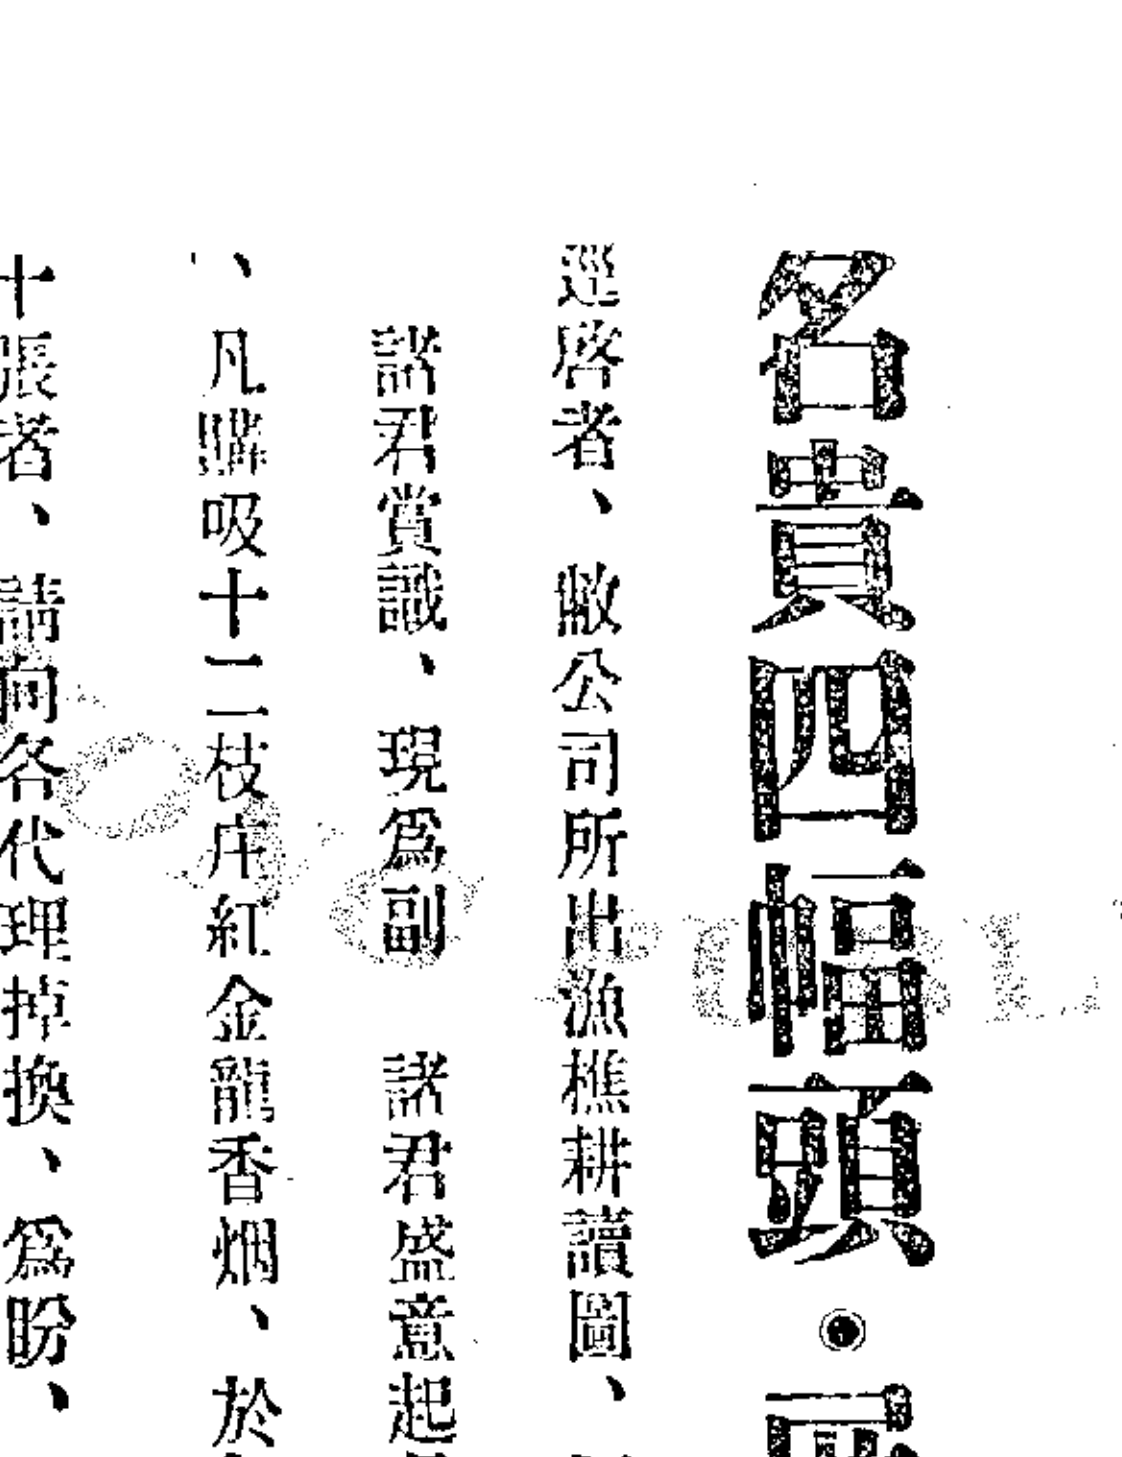 名貴四幅頭◉
逕啓者、敝公司所出漁樵耕讀圖、
諸君賞識、現爲副　諸君盛意起
、凡購吸十二枝庄紅金龍香烟、於
十張者、請向各代理掉換、爲盼、